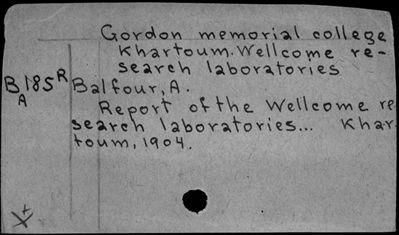 Gordon memorial college
Khartoum. Wellcome re-
search laboratories
B185R Balfour, A.
A
Report of the Wellcome re
search laboratories... Khar
toum, 1904.